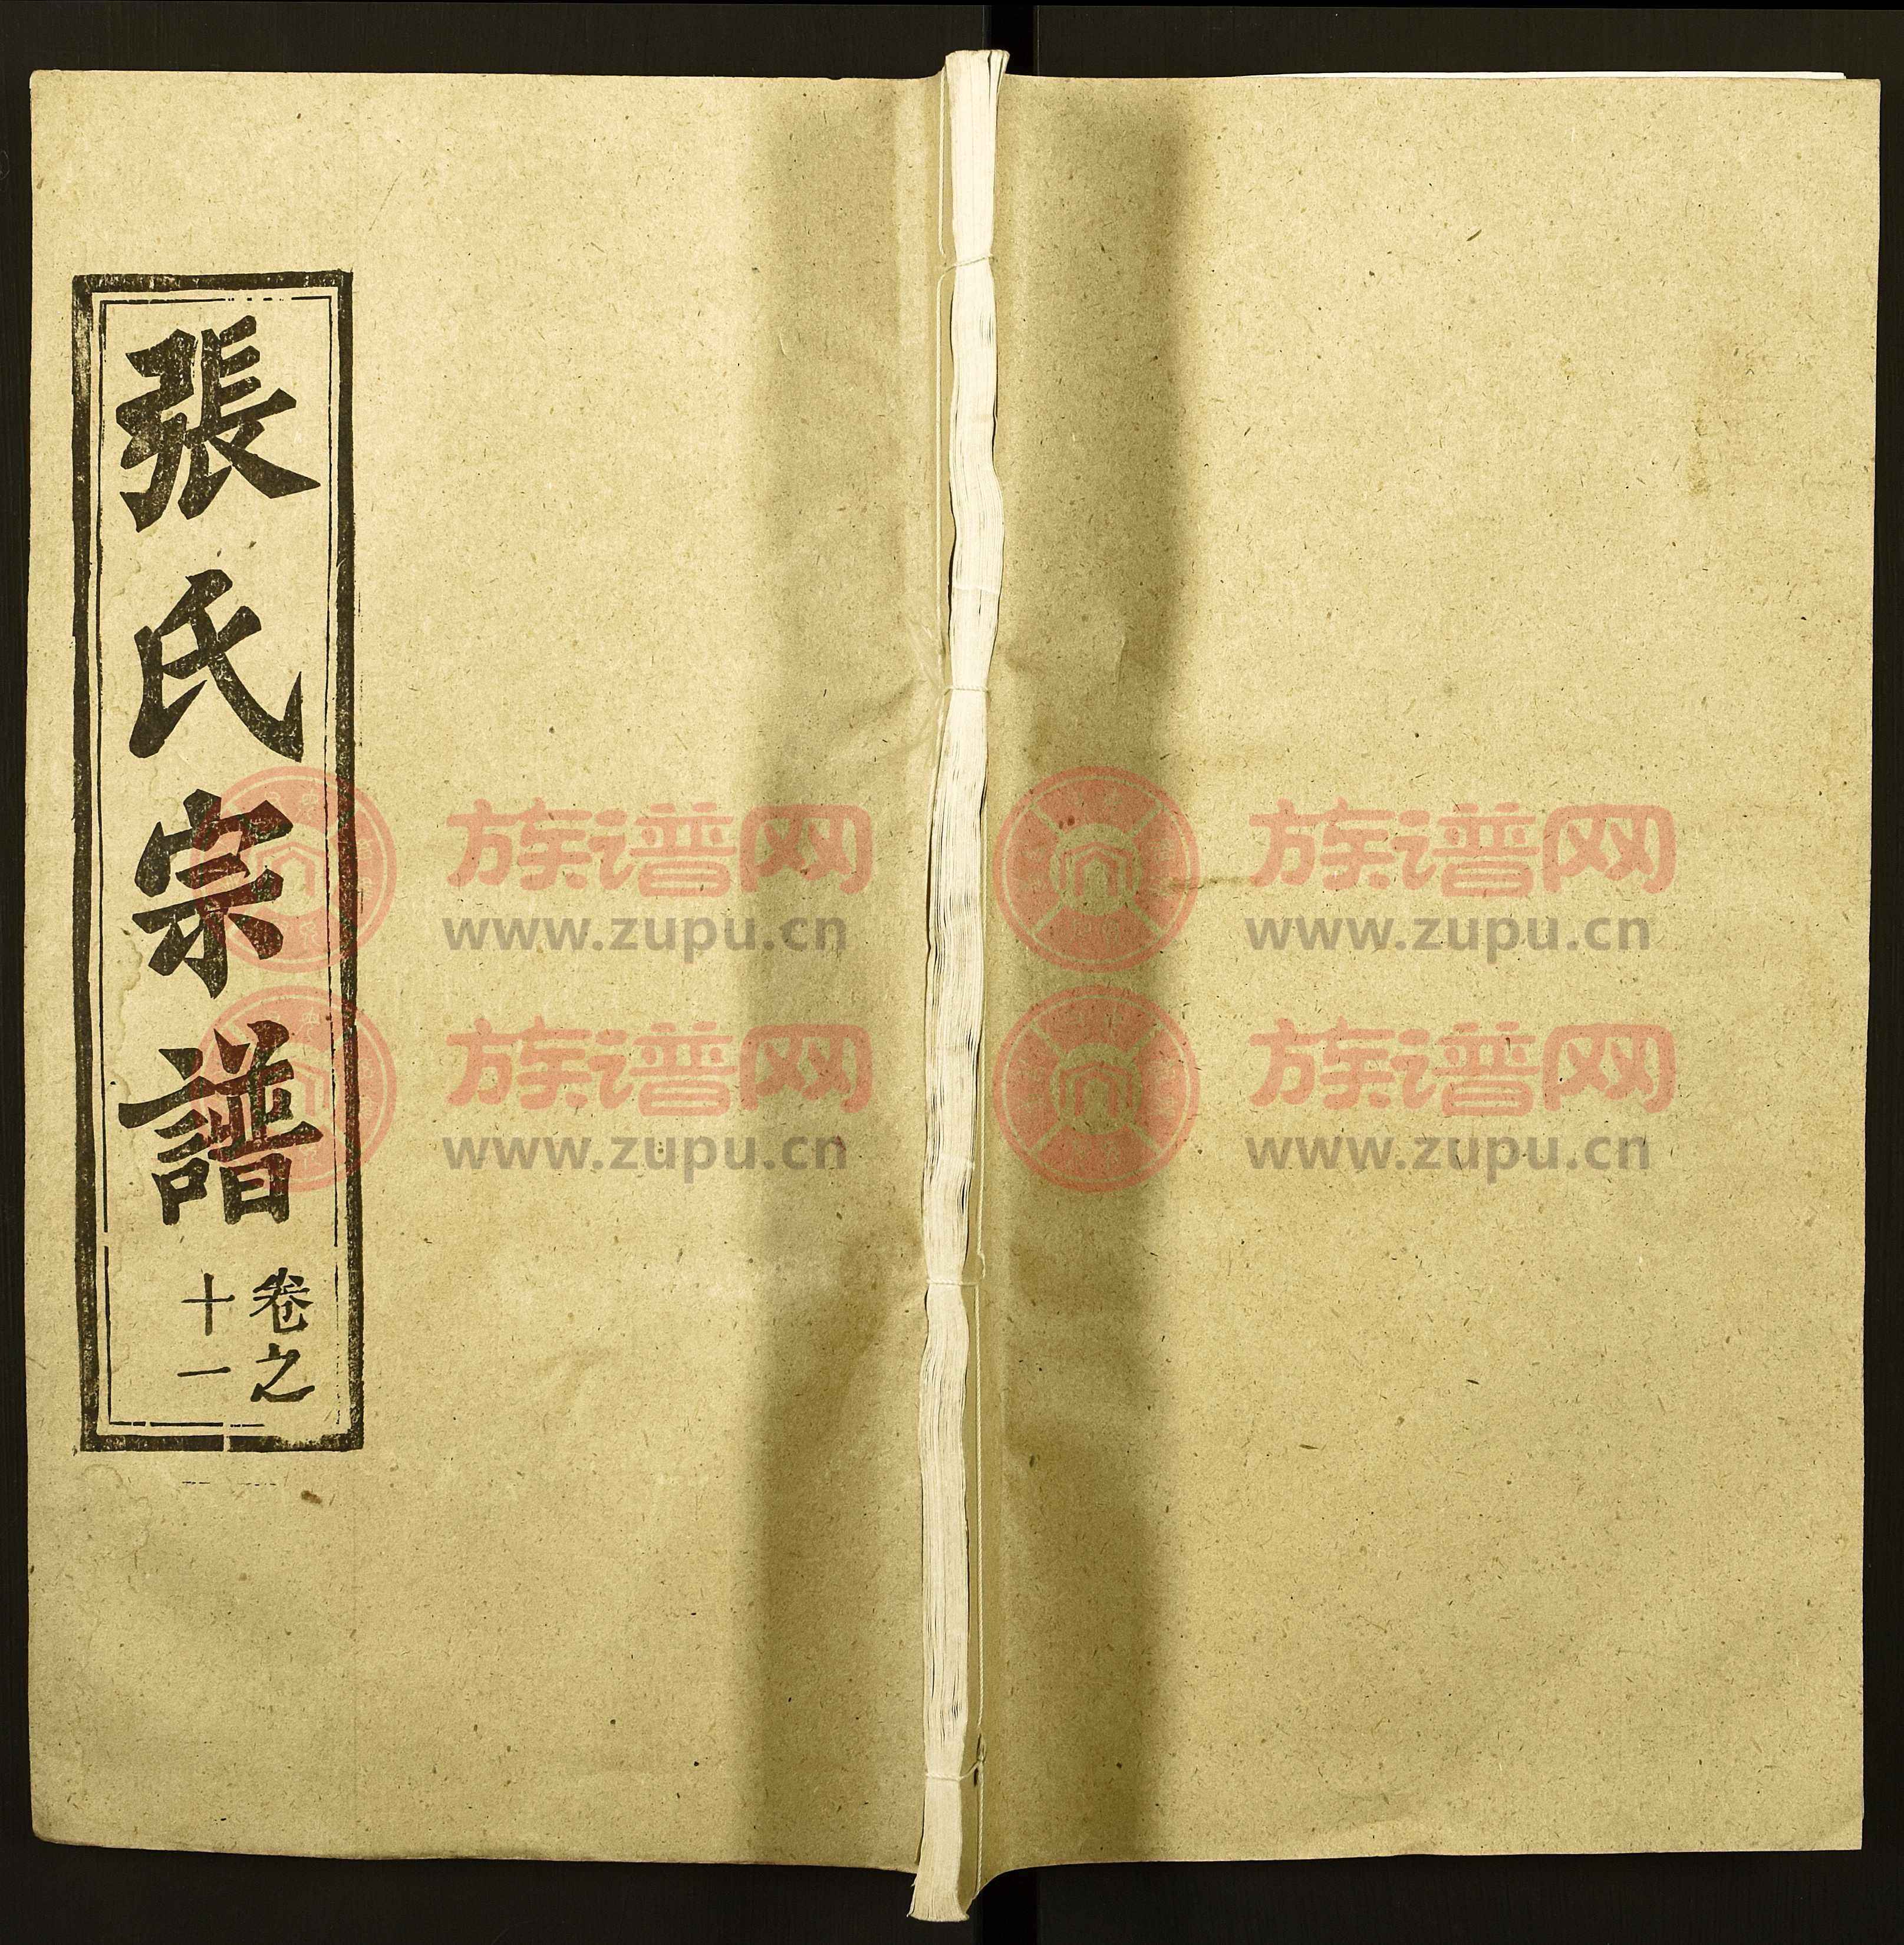 張氏宗譜
卷之
十一
族谱网
www.zupu.cn
族谱网
www.zupu.cn
族谱网
www.zupu.cn
族谱网
www.zupu.cn